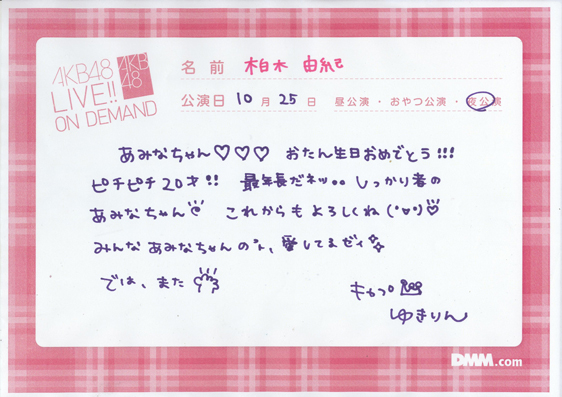 AKB48
LIVE!!
ON DEMAND
AKB
48
名前 柏木 由紀
公演日 10月 25日 昼公演・おやつ公演・夜公演
あみなちゃん♡♡♡ おたん生日おめでとう!!!
ピチピチ20才!! 最年長だネッ。。 しっかり者の
あみなちゃん これからもよろしくね
みんなあみなちゃんの 愛してるゼィ
では、また
キャプ
ゆきりん
DMM.com